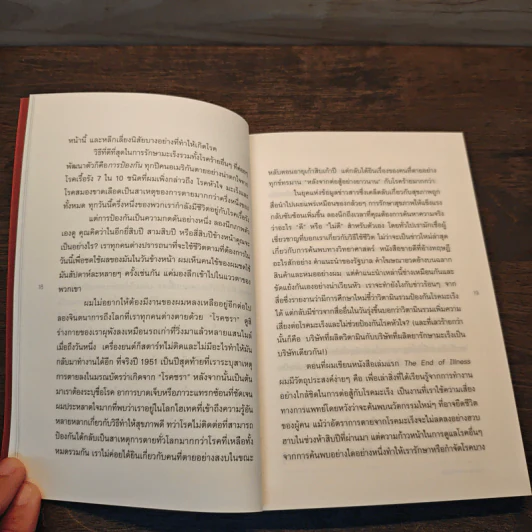 หน้านี้ และหลีกเลี่ยงนิสัยบางอย่างที่ทำให้เกิดโรค
วิธีที่ดีที่สุดในการรักษามะเร็งรวมทั้งโรคร้ายอื่นๆ
พัฒนาตัวก็คือการป้องกัน ทุกปีคนอเมริกันตายอย่างน่าตกใจจาก
โรคเรื้อรัง 7 ใน 10 ชนิดที่ผมเพิ่งกล่าวถึง โรคหัวใจ มะเร็งและ
โรคสมองขาดเลือดเป็นสาเหตุของการตายมากกว่าครึ่งหนึ่ง
ทั้งหมด ทุกวันนี้ครึ่งหนึ่งของพวกเรากำลังมีชีวิตอยู่กับโรคเรื้อรัง
แต่การป้องกันเป็นความกดดันอย่างหนึ่ง ลองนึกภาพตัว
เองดู คุณคิดว่าในอีกยี่สิบปี สามสิบปี หรือสี่สิบปีข้างหน้าคุณจะ
เป็นอย่างไร? เราทุกคนต่างปรารถนาที่จะใช้ชีวิตตามที่ต้องการใน
วันนี้เพื่อชดใช้ผลของมันในวันข้างหน้า ผมเห็นคนใช้ของผมชดใช้
มันสัปดาห์ละหลายๆ ครั้งเช่นกัน แค่มองลึกเข้าไปในแววตาของ
พวกเขา
ผมไม่อยากให้ต้องมีงานของผมหลงเหลืออยู่อีกต่อไป
ลองจินตนาการถึงโลกที่เราทุกคนต่างตายด้วย "โรคชรา" ดูสิ
ร่างกายของเราผุพังลงเหมือนรถเก่าที่วิ่งมาแล้วหลายแสนไมล์
เมื่อถึงวันหนึ่ง เครื่องยนต์ก็สตาร์ทไม่ติดและไม่มีอะไรทำให้มัน
กลับมาทำงานได้อีก ที่จริงปี 1951 เป็นปีสุดท้ายที่เราระบุสาเหตุ
การตายลงในมรณบัตรว่าเกิดจาก "โรคชรา" หลังจากนั้นเป็นต้น
มาเราต้องระบุชื่อโรค อาการบาดเจ็บหรือภาวะแทรกซ้อนที่ชัดเจน
ผมประหลาดใจมากที่พบว่าเราอยู่ในโลกไฮเทคที่เข้าถึงความรู้อัน
หลายหลากเกี่ยวกับวิธีทำให้สุขภาพดี ทว่าโรคไม่ติดต่อที่สามารถ
ป้องกันได้กลับเป็นสาเหตุการตายทั่วโลกมากกว่าโรคที่เหลือทั้ง
หมดรวมกัน เราไม่ค่อยได้ยินเกี่ยวกับคนที่ตายอย่างสงบในขณะ
หลับตอนอายุเก้าสิบเก้าปี แต่กลับได้ยินเรื่องของคนที่ตายอย่าง
ทุกข์ทรมาน "หลังจากต่อสู้อย่างยาวนาน" กับโรคร้ายมากกว่า
ในยุคแห่งข้อมูลข่าวสารซึ่งเคล็ดลับเกี่ยวกับสุขภาพถูก
สื่อนำไปเผยแพร่เหมือนของกล้วยๆ การรักษาสุขภาพให้แข็งแรง
กลับซับซ้อนเพิ่มขึ้น ลองนึกถึงเวลาที่คุณต้องการค้นหาความจริง
ว่าอะไร "ดี" หรือ "ไม่ดี" สำหรับตัวเอง โดยทั่วไปเรามักเชื่อผู้
เชี่ยวชาญที่บอกเราเกี่ยวกับวิธีใช้ชีวิต ไม่ว่าจะเป็นข่าวใหม่ล่าสุด
เกี่ยวกับการค้นพบทางวิทยาศาสตร์ หนังสือขายดีที่อ้างทฤษฎี
อะไรสักอย่าง คำแนะนำของรัฐบาล คำโฆษณาอวดอ้างบนฉลาก
สินค้าและเหมาะอย่างผม แต่คำแนะนำเหล่านี้ช่างเหมือนกันและ
ขัดแย้งกันเองอย่างน่าเวียนหัว เราจะทำยังไงกับข่าวร้อนๆ จาก
สื่อซึ่งรายงานว่ามีการศึกษาใหม่ที่ชี้ว่าวิตามินรวมป้องกันโรคมะเร็ง
ได้ แต่กลับมีข่าวจากสื่ออื่นในวันรุ่งขึ้นบอกว่าวิตามินรวมเพิ่มความ
เสี่ยงต่อโรคมะเร็งและไม่ช่วยป้องกันโรคหัวใจ? (และที่เลวร้ายกว่า
นั้นก็คือ บริษัทที่ผลิตวิตามินกับบริษัทที่ผลิตยารักษามะเร็งเป็น
บริษัทเดียวกัน!)
ตอนที่ผมเขียนหนังสือเล่มแรก The End of Illness
ผมมีวัตถุประสงค์ง่ายๆ คือ เพื่อเล่าสิ่งที่ได้เรียนรู้จากการทำงาน
อย่างใกล้ชิดในการต่อสู้กับโรคมะเร็ง เป็นงานที่เราใช้ความเสี่ยง
ทางการแพทย์โดยหวังว่าจะค้นพบนวัตกรรมใหม่ๆ ที่อาจยืดชีวิต
ของผู้คน แม้ว่าอัตราการตายจากโรคมะเร็งจะไม่ลดลงอย่างฮวบ
ฮาบในช่วงห้าสิบปีที่ผ่านมา แต่ความก้าวหน้าในการดูแลโรคอื่นๆ
จากการค้นพบอย่างใดอย่างหนึ่งทำให้เรารักษาหรือกำจัดโรคบาง